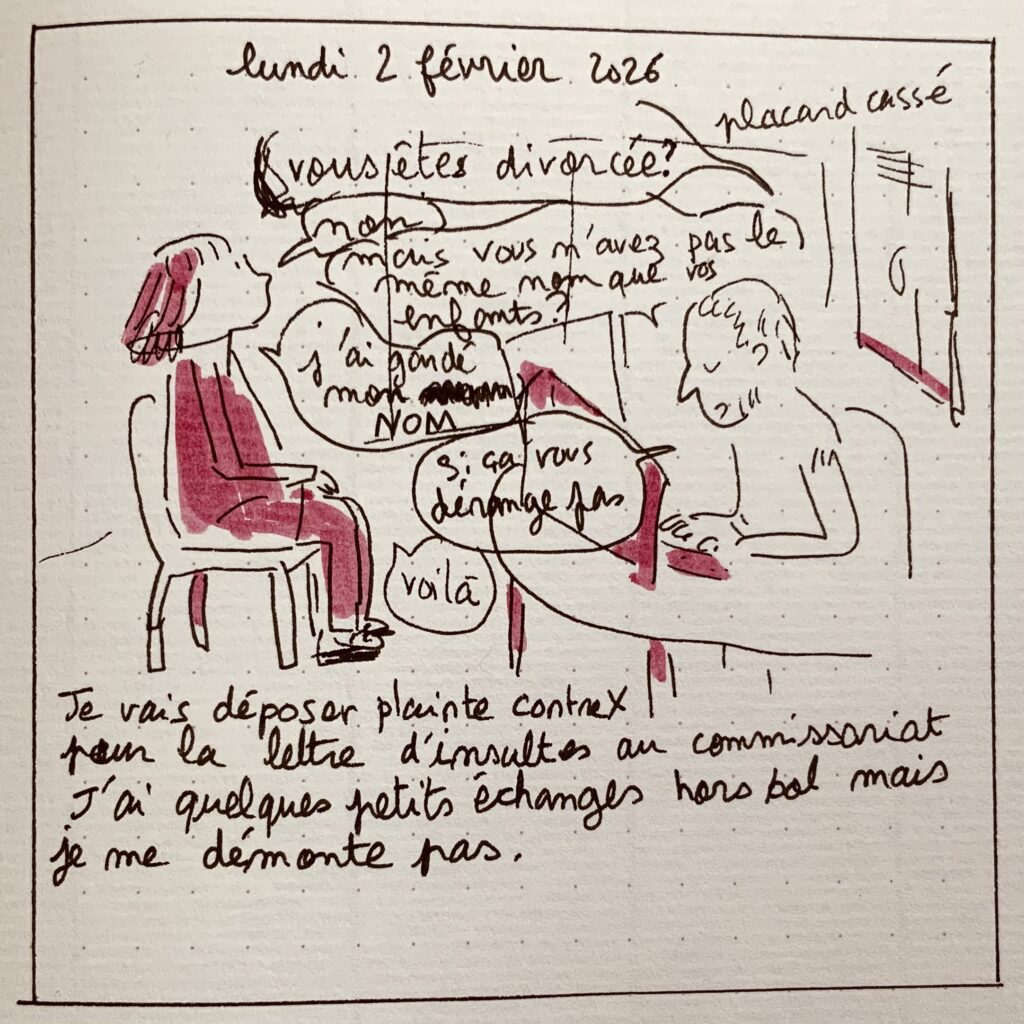 lundi 2 février 2026
placard cassé
vous êtes divorcée?
non
mais vous n'avez pas le
même nom que vos
enfants?
j'ai gardé
mon
NOM
si ça vous
dérange pas
voilà
Je vais déposer plainte contre X
pour la lettre d'insultes au commissariat
J'ai quelques petits échanges hors sol mais
je me démonte pas.